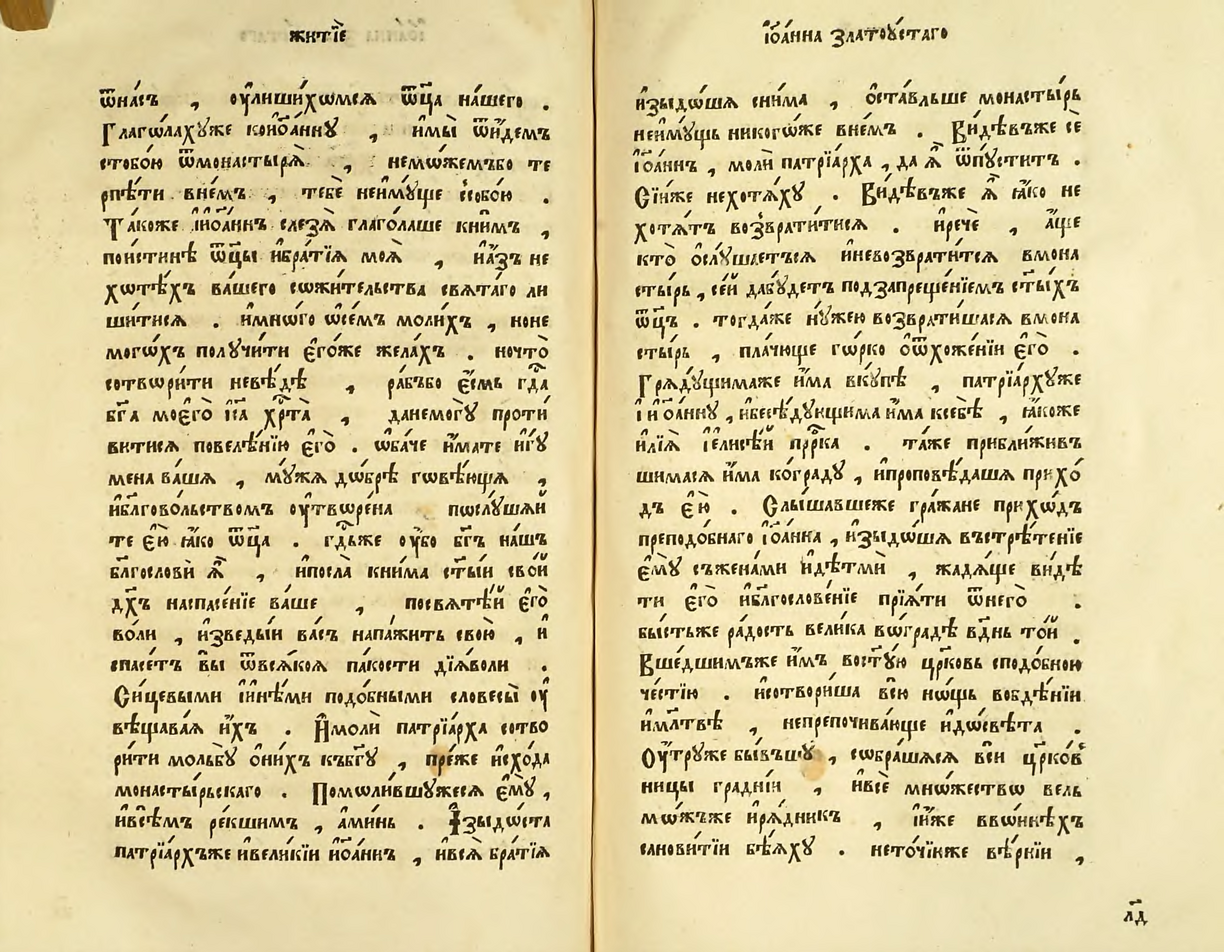 житїе
ѿнасъ , оу҆лиши́хѡмсѧ ѿц҃а на́шего .
Глаго́лахꙋже коїѡа́ннꙋ , и҆мы̀ ѿи́демъ
стобо́ю ѿмонастырѧ̀ , немо́жемъбо те
рпѣ́ти внемъ , тебѐ неимꙋще ссобо́ю .
Та́коже иїѡа́ннъ слеза̀ глаго́лаше кни́мъ ,
пои́стинѣ ѿц҃ы и҆бра́тїѧ моѧ̀ , и҆а́зъ не
хѡтѣ́хъ ва́шего сѡжи́тельства свѧта́го ли
ши́тисѧ . и҆мно́го ѡ҆се́мъ моли́хъ , ноне
мого́хъ полꙋчи́ти є҆го́же жела́хъ . ночто̀
сотвори́ти невѣ́дѣ , ра́бъбо є҆́смь гд҃а
бг҃а моего̀ і҆с҃а хр҃та̀ , данемогꙋ̀ проти́
витисѧ повелѣ́нїю є҆го̀ . ѡ҆ба́че и҆́мате и҆гꙋ́
мена ва́шѧ , мꙋ́жа до́брѣ говѣ́юща ,
и҆бл҃гово́льствомъ оу҆творе́на послꙋ́шаи
те є҆ю̀ ꙗ҆́ко ѿц҃а . гд҃ьже оу҆́бо бг҃ъ на́шъ
бл҃гословѝ ѧ҆̀ , и҆посла̀ книма ст҃ы́и сво́и
дх҃ъ наспасе́нїе ва́ше , посвѧтѣ́и є҆го̀
во́ли , и҆зведы́и ва́съ напа́жить свою̀ , и҆
спасе́тъ вы̀ ѿвсѧ́коѧ па́кости дїѧ́воли .
Си́цевыми и҆и҆нѣ́ми подо́бными словесы̀ оу҆
вѣщава́ѧ и҆́хъ . И҆молѝ патрїа́рха сотво
ри́ти мольбꙋ̀ о҆ни́хъ къбг҃ꙋ , пре́же и҆схо́да
монасты́рьскаго . Помоли́вшꙋжесѧ є҆мꙋ̀ ,
и҆всѣ́мъ ре́кшимъ , а҆ми́нь . И҆зыдо́ста
патрїа́рхъже и҆вели́кїи иѡа́ннъ , и҆всѧ̀ бра́тїѧ
їѡа́нна златоꙋ́стаго
и҆зыдо́шѧ сни́ма , ѡ҆ста́вльше монасты́рь
неимꙋ́щь никого́же вне́мъ . Ви́дѣвъже сѐ
їѡа́ннъ , молѝ патрїа́рха , да ѧ҆̀ ѿпꙋ́ститъ .
Сїи́же нехотѧ́хꙋ . Ви́дѣвъже ѧ҆̀ ꙗ҆́ко не
хотѧ́тъ возврати́тисѧ . и҆речѐ , а҆́ще
кто̀ о҆слꙋ́шаетъсѧ и҆невозврати́тсѧ вмона
сты́рь , се́й дабꙋ́детъ подзапреще́нїемъ ст҃ы́хъ
ѿц҃ъ . тогда́же нꙋ́жею возврати́шасѧ вмона
сты́рь , пла́чюще го́рко о҆ѿхоже́нїи є҆го̀ .
Грѧдꙋ́щимаже и҆́ма вкꙋ́пѣ , патрїа́рхꙋже
і҆иѡа́ннꙋ , и҆бесѣ́дꙋющима и҆́ма ксебѣ̀ , ꙗ҆́коже
и҆лїѧ̀ і҆елисѣ́и прⷪ҇рка . та́же прибли́живъ
шимасѧ и҆́ма ко́градꙋ , и҆проповѣ́дашѧ прихо́
дъ є҆ю̀ . Слы́шавшеже гра́жане прихо́дъ
преподо́бнаго їѡа́нна , и҆зыдо́шѧ встрѣ́тенїе
є҆мꙋ̀ съжена́ми и҆дѣтмѝ , жа́дѧще ви́дѣ
ти є҆го̀ и҆благослове́нїе прїѧ́ти ѿнего̀ .
бы́стьже ра́дость вели́ка во́градѣ вд҃нь то́и .
Вше́дшимъже и҆́мъ вост҃ꙋ́ю цр҃ковь сподо́бною
че́стїю . и҆сотвори́ша всю̀ но́щь вобдѣ́нїи
и҆мл҃твѣ , непрепочива́юще и҆до́свѣта .
Оу҆́трꙋже бы́вьшꙋ , собра́шасѧ всѝ цр҃ко́в
ницы гра́днїи , и҆всѐ мно́жество вель
мо́жъже и҆рѧ́дникъ , і҆и҆́же во́инѣхъ
санови́тїи бѣ́ѧхꙋ . не то́чїюже вѣ́рнїи ,
л҃д